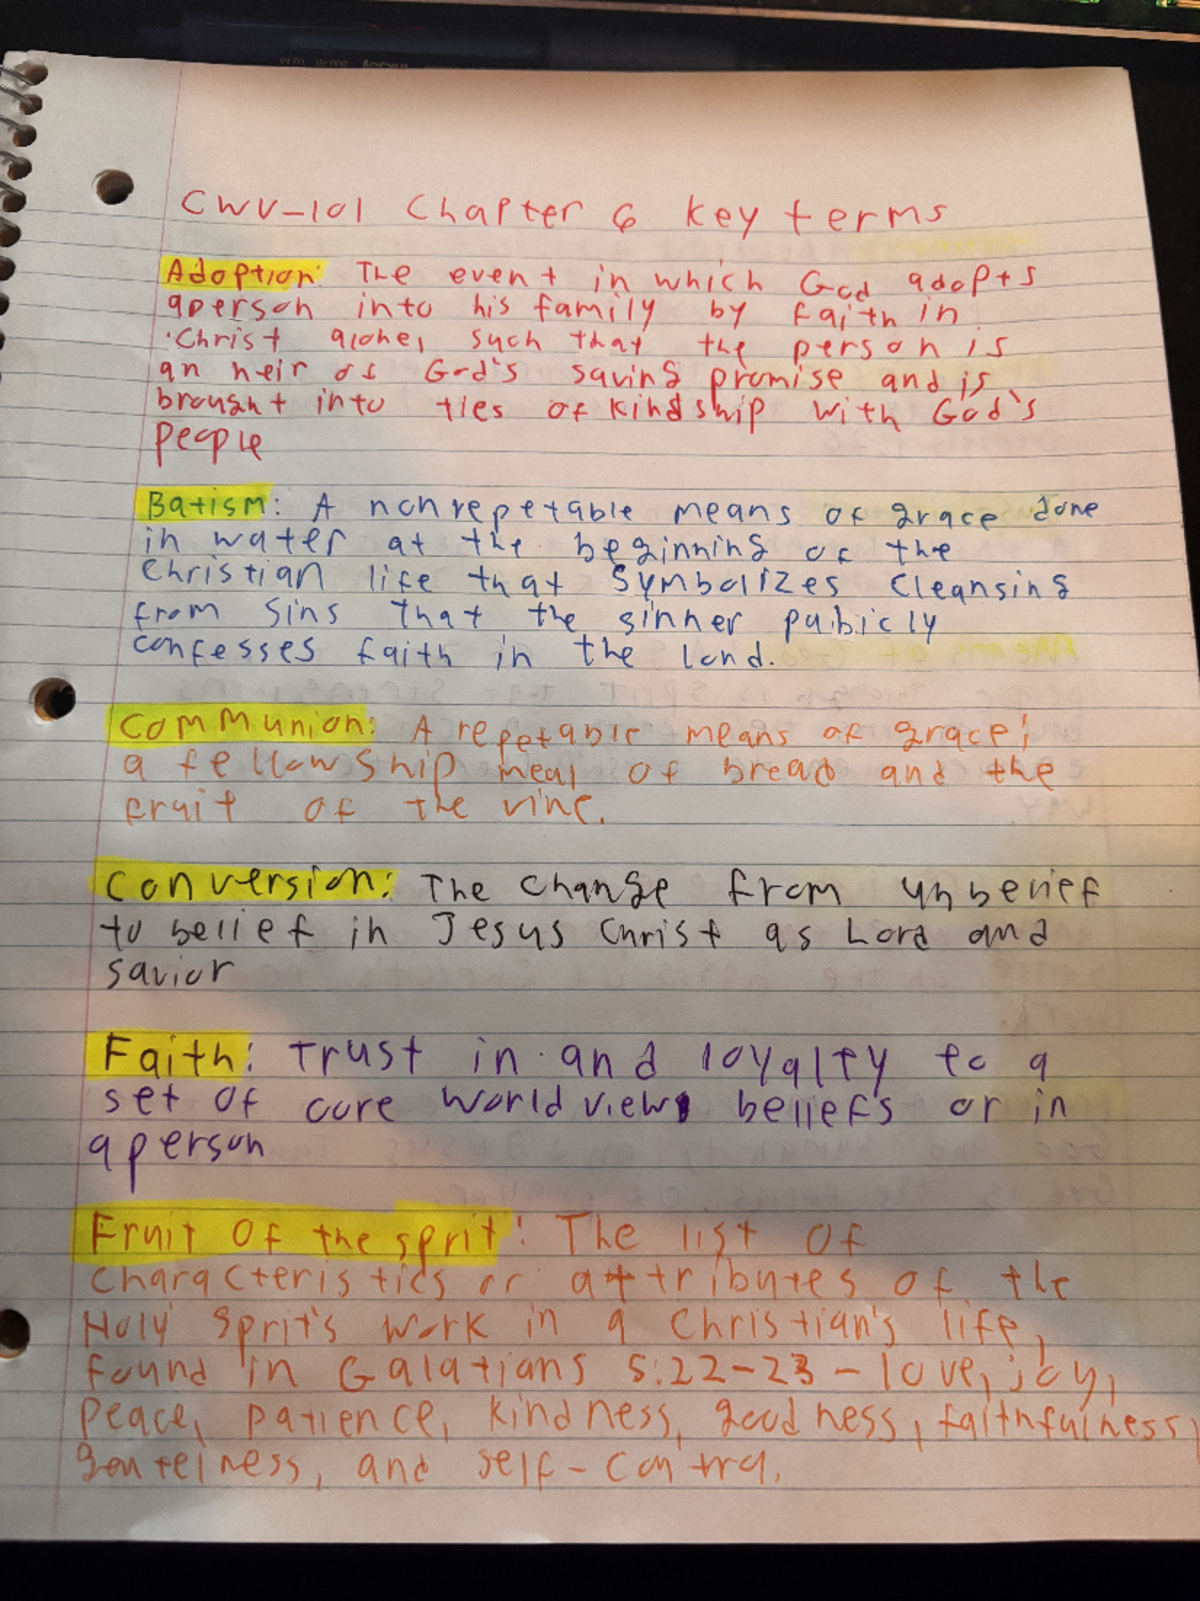 CWV-101 Chapter 6 key terms
Adoption: The event in which God adopts
aperson into his family by faith in
Christ alone, such that the person is
an heir of God's saving promise and is
brought into ties of kindship with God's
people
Batism: A nonrepetable means of grace done
in water at the beginning of the
Christian life that symbolizes cleansing
from sins that the sinner pubicly
confesses faith in the Lord.
Communion: A repetable means of grace;
a fellowship meal of bread and the
fruit of the vine.
Conversion: The change from unbelief
to belief in Jesus Christ as Lord and
savior
Faith: Trust in and loyalty to a
set of core worldview beliefs or in
aperson
Fruit of the sprit: The list of
characteristics or attributes of the
Holy Sprit's work in a Christian's life,
found in Galatians 5:22-23 - love, joy,
peace, patience, kindness, goodness, faithfulness,
gentelness, and self-control.